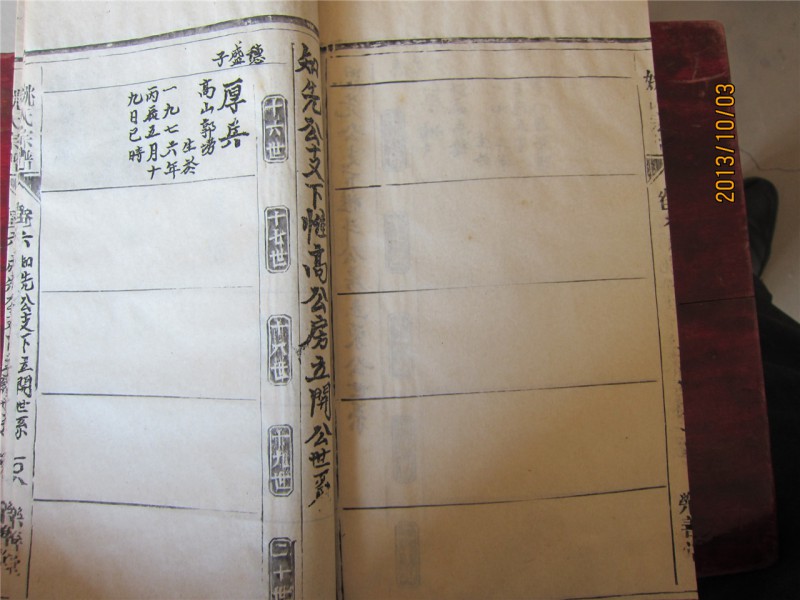 2013/10/03
知先公支下惟高公房立開公世系
十六世
十七世
十八世
十九世
二十世
德盛子
厚兵
高山郭塆
生於
一九七六年
丙辰五月十
九日巳時
姚氏宗譜
卷六 知先公支下立開世系 一〇八